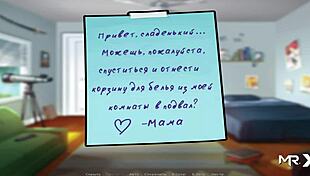 Привет, сладенький...
Можешь, пожалуйста,
спуститься и отнести
корзину для белья из моей
комнаты в подвал?
-Мама
MR.X